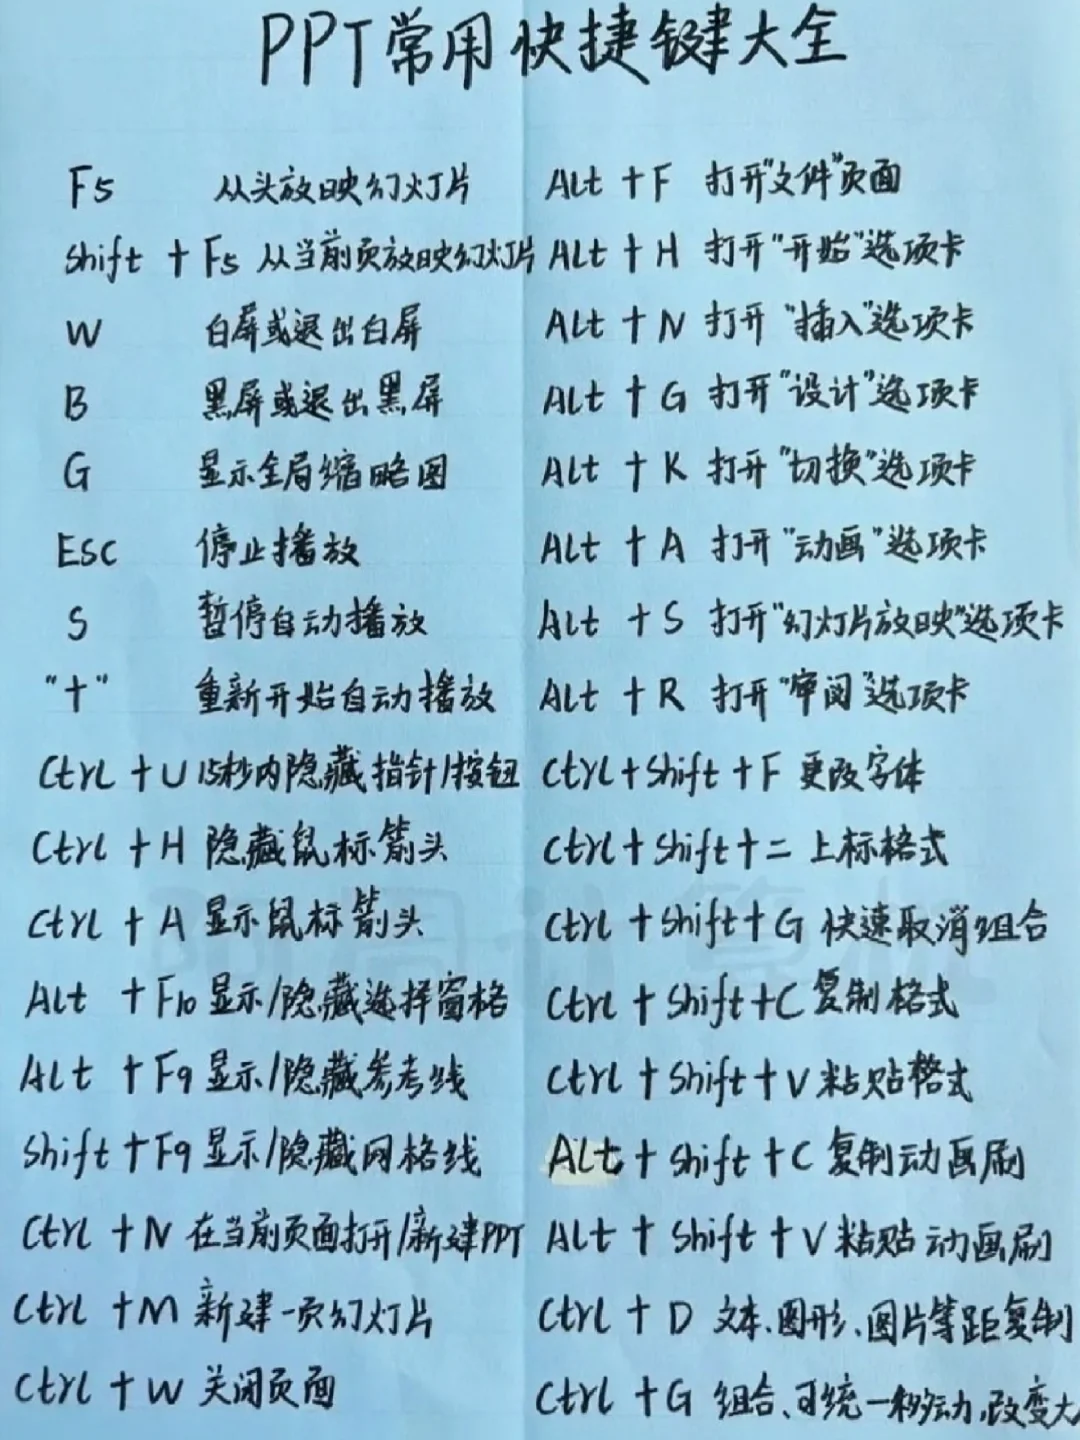 PPT常用快捷键大全
F5 从头放映幻灯片
Shift + F5 从当前页放映幻灯片
W 白屏或退出白屏
B 黑屏或退出黑屏
G 显示全局缩略图
ESC 停止播放
S 暂停自动播放
"+" 重新开始自动播放
Ctrl + U 15秒内隐藏指针/按钮
Ctrl + H 隐藏鼠标箭头
Ctrl + A 显示鼠标箭头
Alt + F10 显示/隐藏选择窗格
Alt + F9 显示/隐藏参考线
Shift + F9 显示/隐藏网格线
Ctrl + N 在当前页面打开/新建PPT
Ctrl + M 新建一页幻灯片
Ctrl + W 关闭页面
Alt + F 打开"文件"页面
Alt + H 打开"开始"选项卡
Alt + N 打开"插入"选项卡
Alt + G 打开"设计"选项卡
Alt + K 打开"切换"选项卡
Alt + A 打开"动画"选项卡
Alt + S 打开"幻灯片放映"选项卡
Alt + R 打开"审阅"选项卡
Ctrl + Shift + F 更改字体
Ctrl + Shift + = 上标格式
Ctrl + Shift + G 快速取消组合
Ctrl + Shift + C 复制格式
Ctrl + Shift + V 粘贴格式
Alt + Shift + C 复制动画刷
Alt + Shift + V 粘贴动画刷
Ctrl + D 文本、图形、图片等距复制
Ctrl + G 组合、可统一移动,改变大
阿周计算机